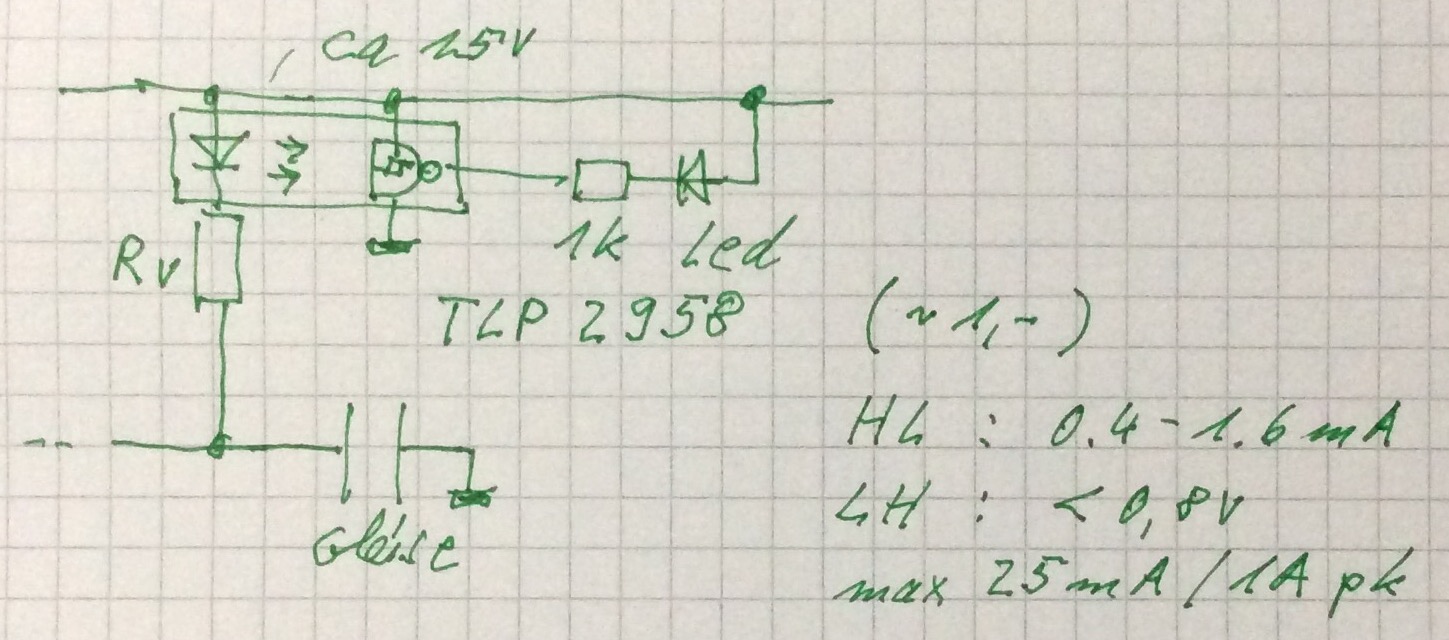 ca 15V
Rv
1k Led
TLP 2958 (~1,-)
HL : 0.4-1.6mA
Gleise
LH : <0,8V
max 25mA/1A pk